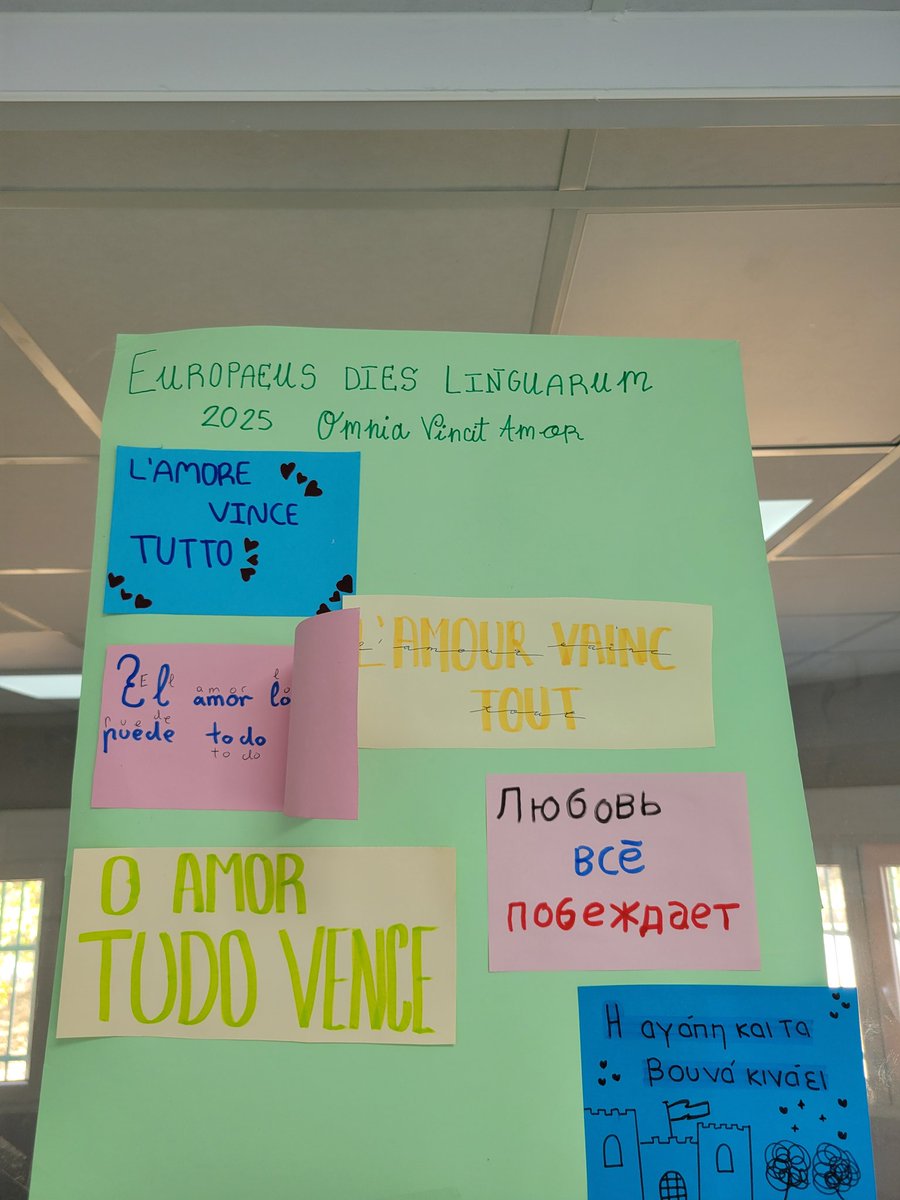 EUROPAEUS DIES LINGUARUM
2025 Omnia Vincit Amor
L'AMORE
VINCE
TUTTO
L'AMOUR VAINC
TOUT
El amor lo
puede todo
Любовь
всё
побеждает
O AMOR
TUDO VENCE
Η αγάπη και τα
βουνά κινάει